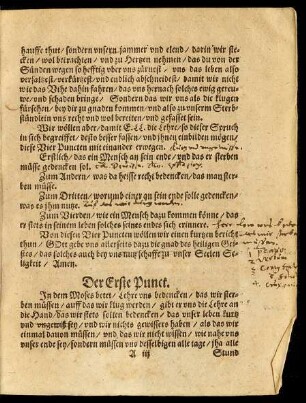 hauffe thut / sondern unsern jammer und elend / darin wir ste-
cken / wol betrachten / und zu Hertzen nehmen / das du von der
Sünden wegen so hefftig uber uns zürnest / uns das leben also
verfasest / verkürtzest / und endlich abschneidest / damit wir nicht
wie das Vihe dahin fahren / das uns hernach solches ewig gerewe-
/ und schaden bringe / Sondern das wir uns als die klugen
fürsehen / bey dir zu gnaden kommen / und also zu unserm Sterb-
stündlein uns recht und wol bereiten / und gefast seyn.
Wir wöllen aber / damit E. L. die Lehre / so dieser Spruch
in sich begreiffet / desto besser fassen / und ihnen einbilden mögen /
diese Vier Puncten mit einander erwegen.
Erstlich / das ein Mensch an sein ende / und das er sterben
müsse gedencken sol.
Zum Andern / was da heisse recht bedencken / das man ster-
ben müsse.
Zum Dritten / worumb einer an sein ende solle gedencken /
was es ihm nutze.
Zum Vierden / wie ein Mensch dazu kommen könne / das
er stets in seinem leben solches seines endes sich erinnere.
Von diesen Vier Puncten wöllen wir einen kurtzen bericht
thun / GOtt gebe uns allerseits dazu die gnad des heiligen Gei-
stes / das solches auch bey uns schaffe frucht zu unser Seelen Se-
ligkeit / Amen.
Der Erste Punct.
In dem Moses betet / Lehre uns bedencken / das wir ster-
ben müssen / auff das wir klug werden / gibt er uns die Lehre an
die Hand / das wir stets sollen bedencken / das unser leben kurtz
und ungewiß sey / und wir nichts gewissers haben / als das wir
einmal davon müssen / und das wir nicht wissen / wie nahe uns
unser ende sey / sondern müssen uns desselbigen alle tage / jha alle
A iij Stund